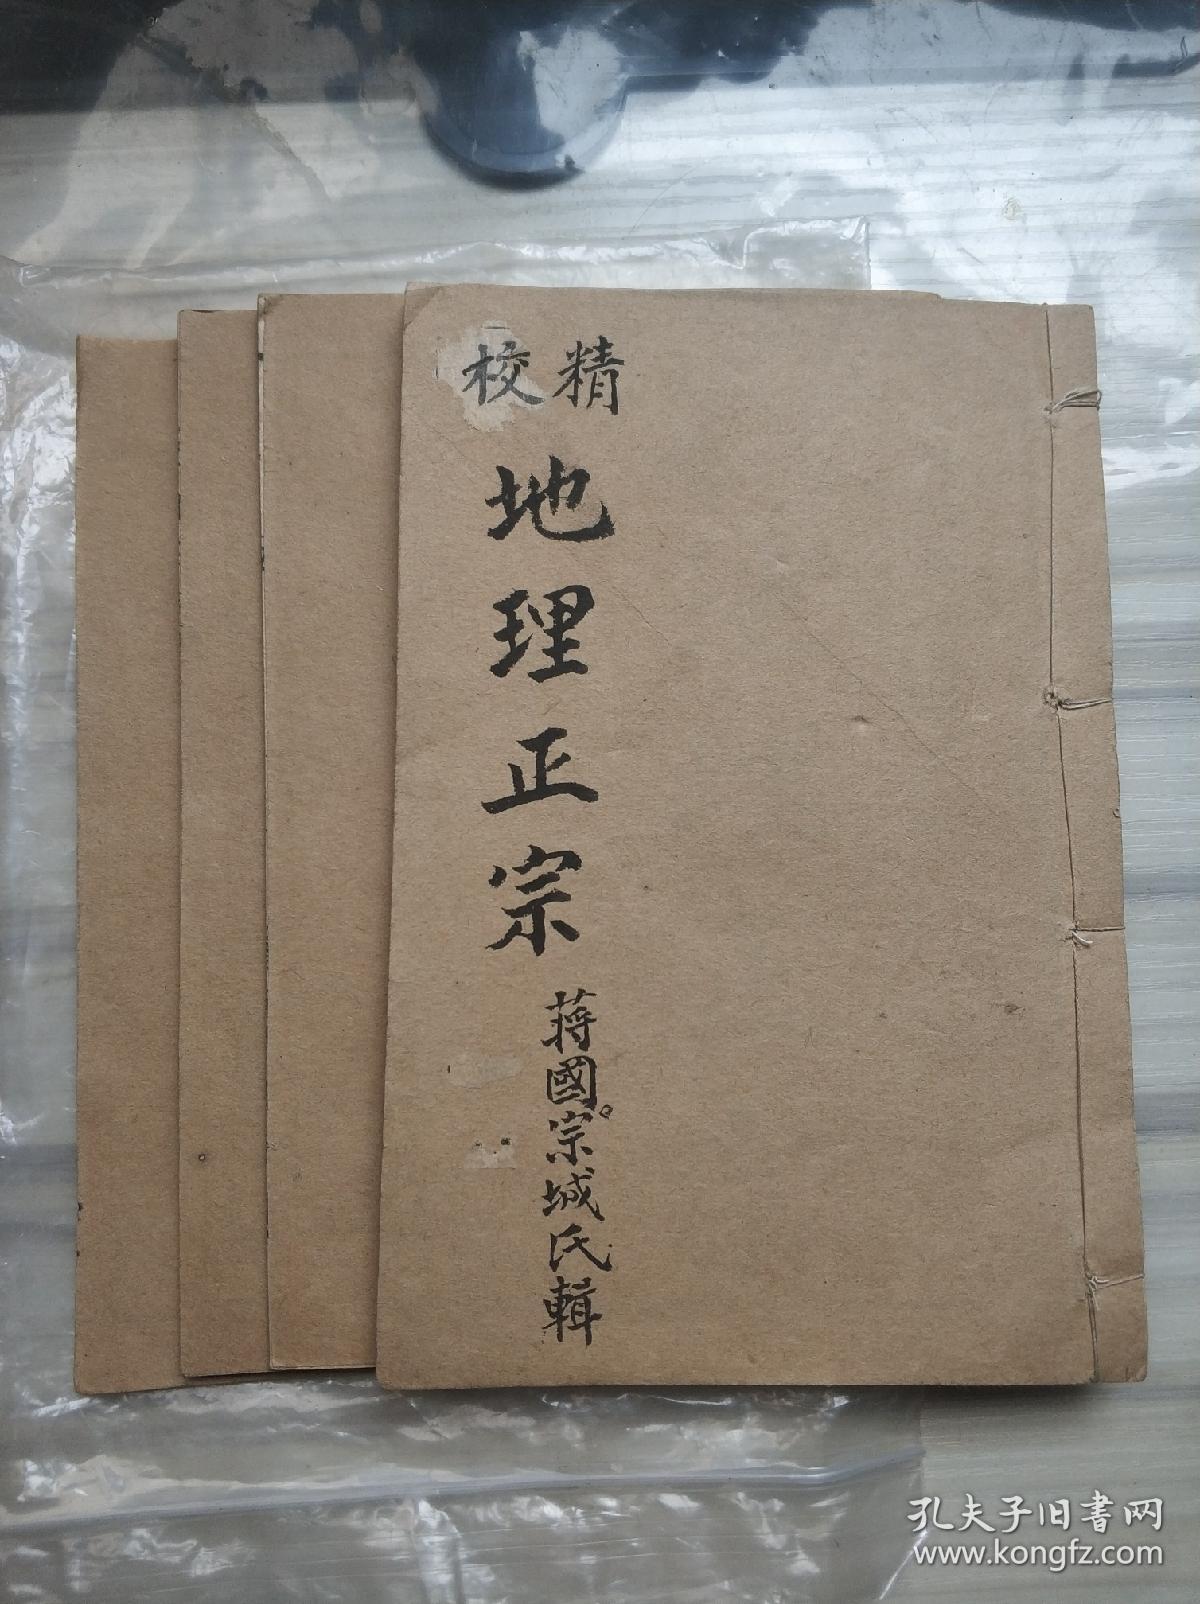 精校
地理正宗
蔣國宗城氏輯
孔夫子旧书网
www.kongfz.com